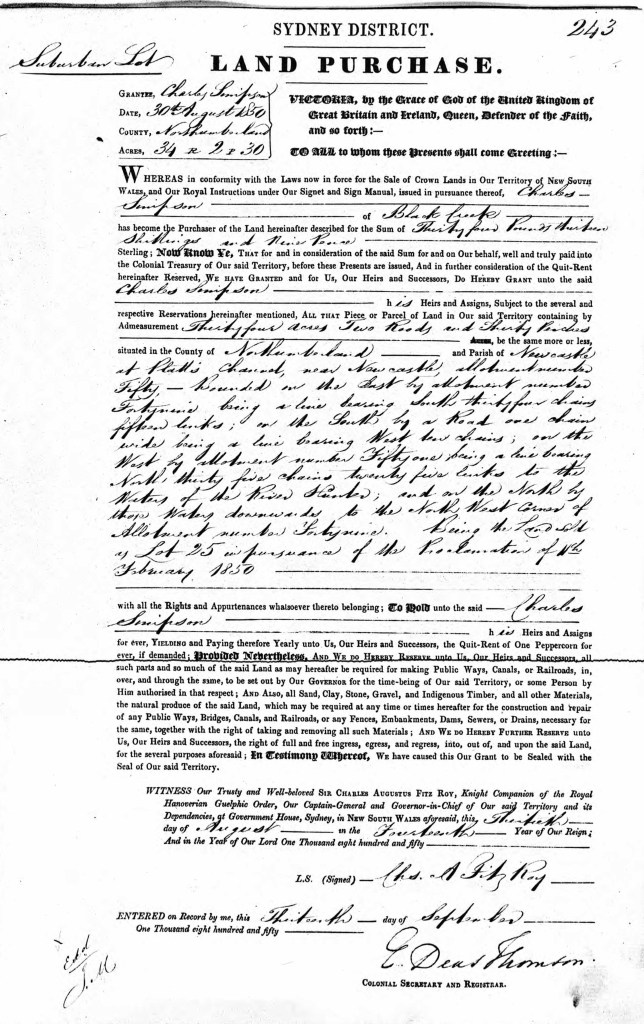 SYDNEY DISTRICT.
243
Suburban Lot
LAND PURCHASE.
GRANTEE, Charles Simpson
DATE, 30th August 1850
COUNTY, Northumberland
ACRES, 34 R 2 P 30
VICTORIA, by the Grace of God of the United Kingdom of
Great Britain and Ireland, Queen, Defender of the Faith,
and so forth:—
TO ALL to whom these Presents shall come Greeting:—
WHEREAS in conformity with the Laws now in force for the Sale of Crown Lands in Our Territory of NEW SOUTH
WALES, and Our Royal Instructions under Our Signet and Sign Manual, issued in pursuance thereof, Charles
Simpson of Black Creek
has become the Purchaser of the Land hereinafter described for the Sum of Thirty four Pounds thirteen
Shillings and Nine Pence
Sterling; Now Know Ye, THAT for and in consideration of the said Sum for and on Our behalf, well and truly paid into
the Colonial Treasury of Our said Territory, before these Presents are issued, And in further consideration of the Quit-Rent
hereinafter Reserved, WE HAVE GRANTED and for Us, Our Heirs and Successors, DO HEREBY GRANT unto the said
Charles Simpson
his Heirs and Assigns, Subject to the several and
respective Reservations hereinafter mentioned, ALL THAT Piece or Parcel of Land in Our said Territory containing by
Admeasurement Thirty four acres Two Roods and Thirty Perches
Acres, be the same more or less,
situated in the County of Northumberland and Parish of Newcastle
at Platts Channel, near Newcastle, allotment number
Fifty — Bounded on the East by allotment number
Fortynine being a line bearing South thirty four chains
fifteen links; on the South by a Road one chain
wide being a line bearing West ten chains; on the
West by allotment number Fifty one being a line bearing
North thirty five chains twenty five links to the
Waters of the River Hunter; and on the North by
those Waters downwards to the North West corner of
Allotment number Fortynine. Being the Land sold
as Lot 25 in pursuance of the Proclamation of 11th
February 1850
with all the Rights and Appurtenances whatsoever thereto belonging; To Hold unto the said — Charles
Simpson
his Heirs and Assigns
for ever, YIELDING and Paying therefore Yearly unto Us, Our Heirs and Successors, the Quit-Rent of One Peppercorn for
ever, if demanded; Provided Nevertheless, AND WE DO HEREBY RESERVE unto Us, Our Heirs and Successors, all
such parts and so much of the said Land as may hereafter be required for making Public Ways, Canals, or Railroads, in,
over, and through the same, to be set out by Our GOVERNOR for the time-being of Our said Territory, or some Person by
Him authorised in that respect; AND ALSO, all Sand, Clay, Stone, Gravel, and Indigenous Timber, and all other Materials,
the natural produce of the said Land, which may be required at any time or times hereafter for the construction and repair
of any Public Ways, Bridges, Canals, and Railroads, or any Fences, Embankments, Dams, Sewers, or Drains, necessary for
the same, together with the right of taking and removing all such Materials; AND WE DO HEREBY FURTHER RESERVE unto
Us, Our Heirs and Successors, the right of full and free ingress, egress, and regress, into, out of, and upon the said Land,
for the several purposes aforesaid; In Testimony Whereof, WE have caused this Our Grant to be Sealed with the
Seal of Our said Territory.
WITNESS Our Trusty and Well-beloved SIR CHARLES AUGUSTUS FITZ ROY, Knight Companion of the Royal
Hanoverian Guelphic Order, Our Captain-General and Governor-in-Chief of Our said Territory and its
Dependencies, at Government House, Sydney, in NEW SOUTH WALES aforesaid, this, Thirtieth
day of August in the Fourteenth Year of Our Reign;
And in the Year of Our Lord One Thousand eight hundred and fifty
L.S. (Signed) — Chs. A Fitz Roy
ENTERED on Record by me, this Thirteenth day of September
One Thousand eight hundred and fifty
E. Deas Thomson.
COLONIAL SECRETARY AND REGISTRAR.
Exd
J.M